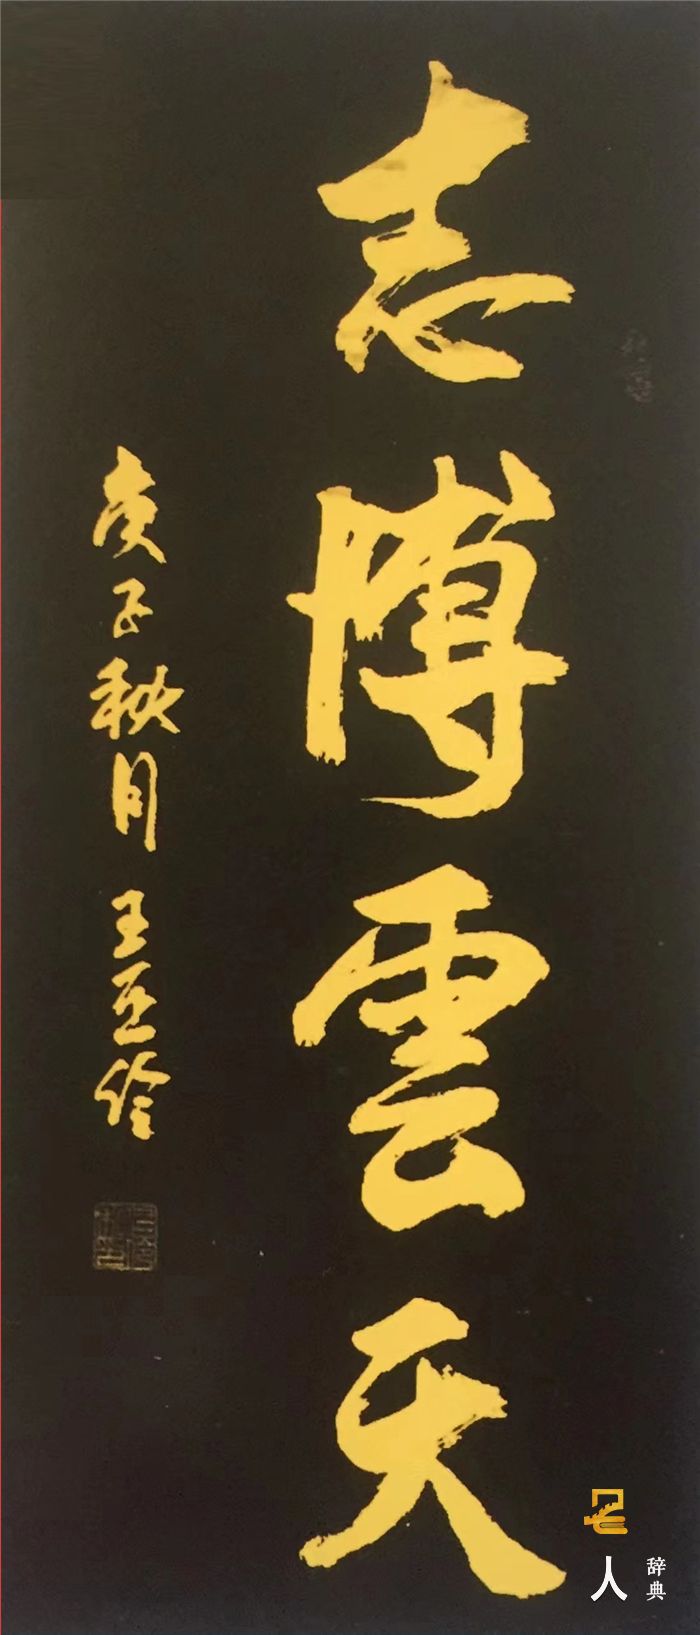 志博雲天
庚子秋月 王亚伶
名人辞典